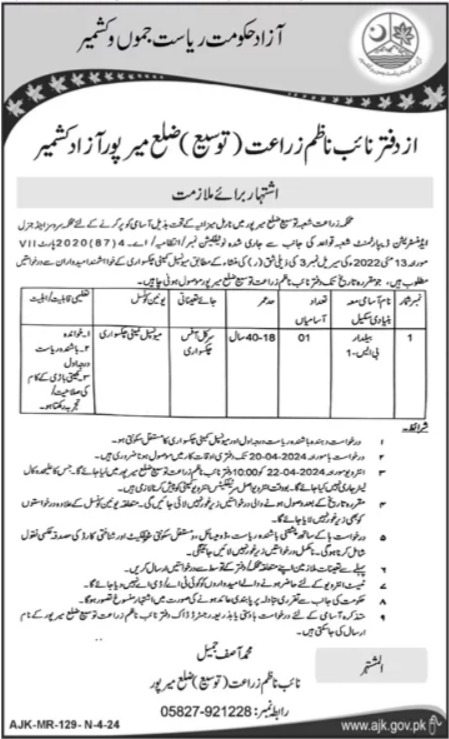 آزاد حکومت ریاست جموں و کشمیر
از دفتر نائب ناظم زراعت (توسیع) ضلع میرپور آزاد کشمیر
اشتہار برائے ملازمت
محکمہ زراعت شعبہ توسیع ضلع میرپور میں نارمل میزانیہ کے تحت بذیل آسامی کو پر کرنے کے لئے محکمہ سروسز اینڈ جنرل
ایڈمنسٹریشن ڈیپارٹمنٹ شعبہ قواعد کی جانب سے جاری شدہ نوٹیفکیشن نمبر/انتظامیہ/اے۔4(87)2020 پارٹ VII
مورخہ 13 مئی 2022ء کی سیریل نمبر 3 کی ذیلی شق (ر) کی منشاء کے مطابق میونسپل کمیٹی چکسواری کے خواہشمند امیدواران سے درخواستیں
مطلوب ہیں، جو مقررہ تاریخ تک دفتر نائب ناظم زراعت توسیع ضلع میرپور موصول ہونی چاہیں۔
نمبر شمار | نام آسامی معہ بنیادی سکیل | تعداد آسامیاں | حد عمر | جائے تعیناتی | یونین کونسل | تعلیمی قابلیت/اہلیت
1 | بیلدار بی ایس۔1 | 01 | 18-40 سال | سرکل آفس چکسواری | میونسپل کمیٹی چکسواری | ۱۔خواندہ
۲۔ باشندہ ریاست درجہ اول
۳۔ کھیتی باڑی کے کام کی صلاحیت/تجربہ رکھتا ہو۔
شرائط:۔
۱ درخواست دہندہ باشندہ ریاست درجہ اول اور میونسپل کمیٹی چکسواری کا مستقل سکونتی ہو۔
۲ درخواست ہا مورخہ 20-04-2024 تک دفتری اوقات کار میں موصول ہونا ضروری ہیں۔
۳ انٹرویو مورخہ 22-04-2024 کو 10:00 دفتر نائب ناظم زراعت توسیع ضلع میرپور میں لیا جائے گا۔ جس کا علیحدہ کال
لیٹر جاری نہیں کیا جائے گا۔ بوقت انٹرویو اصل سرٹیفکیٹس انٹرویو کمیٹی کو پیش کرنا لازمی ہیں۔
۴ مقررہ تاریخ کے بعد موصول ہونے والی درخواستیں زیر غور نہیں لائی جائیں گی۔ متعلقہ یونین کونسل کے علاوہ درخواستوں
کو بھی زیر غور نہیں لایا جائے گا۔
۵ درخواست ہا کے ساتھ پشتینی باشندہ ریاست، ڈومیسائل، مستقل سکونتی سرٹیفکیٹ اور شناختی کارڈ کی مصدقہ عکسی نقول
شامل کرنا ہوں گی۔ نامکمل درخواستیں زیر غور نہیں لائی جائیں گی۔
۶ پہلے سے تعینات ملازمین اپنے متعلقہ محکمہ/دفتر کے توسط سے درخواستیں ارسال کریں۔
۷ ٹیسٹ انٹرویو کے لئے حاضر ہونے والے امیدواروں کو کوئی ٹی اے/ڈی اے نہیں دیا جائے گا۔
۸ حکومت کی جانب سے تقرری تبادلہ پر پابندی عائد ہونے کی صورت میں اشتہار منسوخ تصور ہوگا۔
۹ متذکرہ آسامی کے لئے درخواست ہا دستی یا بذریعہ رجسٹرڈ ڈاک دفتر نائب ناظم زراعت توسیع ضلع میرپور کے نام
ارسال کی جا سکتی ہیں۔
المشتہر
محمد آصف جمیل
نائب ناظم زراعت (توسیع) ضلع میرپور
رابطہ نمبر: 05827-921228
AJK-MR-129- N-4-24
www.ajk.gov.pk